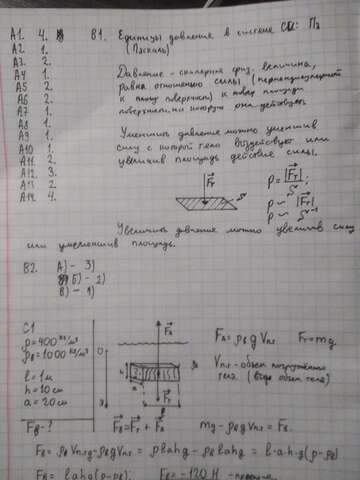 А1. 4.
А2 1.
А3. 2
А4 1.
А5 2
А6 2.
А7 1.
А8 1.
А9 1.
А10 1.
А11. 2.
А12. 3.
А13 2
А14. 4.
В1. Единицы давления в системе СИ: Па
(Паскаль)
Давление - скалярная физ. величина,
равна отношению силы (перпендикулярной
к площ поверхности) к площади
поверхности, на которую она действует
Уменьшить давление можно уменьшив
силу с которой тело воздействует или
увеличив площадь действие силы.
F⃗т
S
P = |F⃗т| / S ;
p ~ |F⃗т|
p ~ S⁻¹
Увеличить давление можно увеличив силу
или уменьшив площадь.
В2. А) - 3)
Б) - 2)
В) - 1)
С1
ρ=400 кг/м³
ρв=1000 кг/м³
l = 1м
h = 10 см
a = 20 см
Fв - ?
0
F⃗в = F⃗т + F⃗А
FА = ρв g Vпт Fт = mg
Vпт - объем погружённого
тела (весь объем тела)
mg - ρв g Vпт = Fв
Fв = ρVптg - ρвgVпт = ρlahg - ρвlahg = l·a·h·g(ρ-ρв)
Fв = lahg(ρ-ρв). Fв = -120 Н -